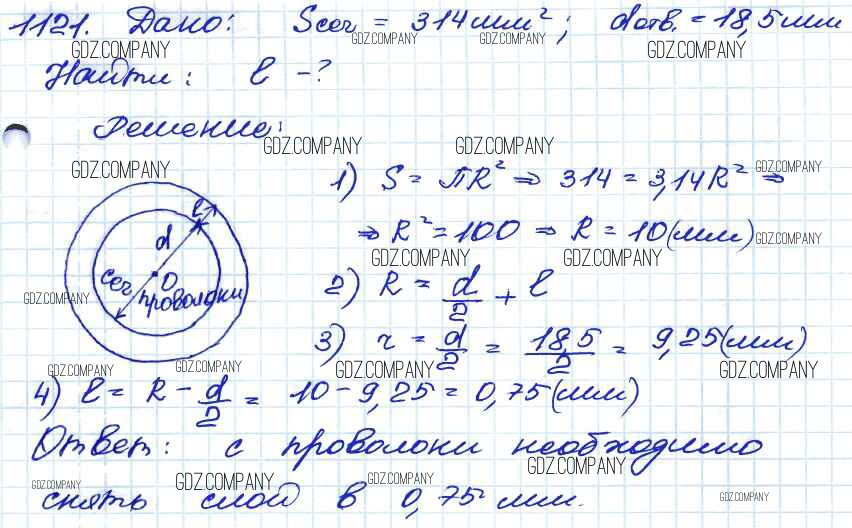 1121. Дано: Sсеч = 314мм²; dотв. = 18,5мм
GDZ.COMPANY GDZ.COMPANY GDZ.COMPANY GDZ.COMPANY
Найти: ℓ -?
Решение:
GDZ.COMPANY GDZ.COMPANY
GDZ.COMPANY GDZ.COMPANY
1) S = πR² ⇒ 314 = 3,14R² ⇒
⇒ R² = 100 ⇒ R = 10(мм)
GDZ.COMPANY
GDZ.COMPANY GDZ.COMPANY
ℓ
d
O
сеч проволоки
GDZ.COMPANY
2) R = d/2 + ℓ
3) r = d/2 = 18,5/2 = 9,25(мм)
GDZ.COMPANY GDZ.COMPANY GDZ.COMPANY GDZ.COMPANY
4) ℓ = R - d/2 = 10 - 9,25 = 0,75(мм)
Ответ: с проволоки необходимо
GDZ.COMPANY
GDZ.COMPANY GDZ.COMPANY GDZ.COMPANY GDZ.COMPANY
снять слой в 0,75 мм.